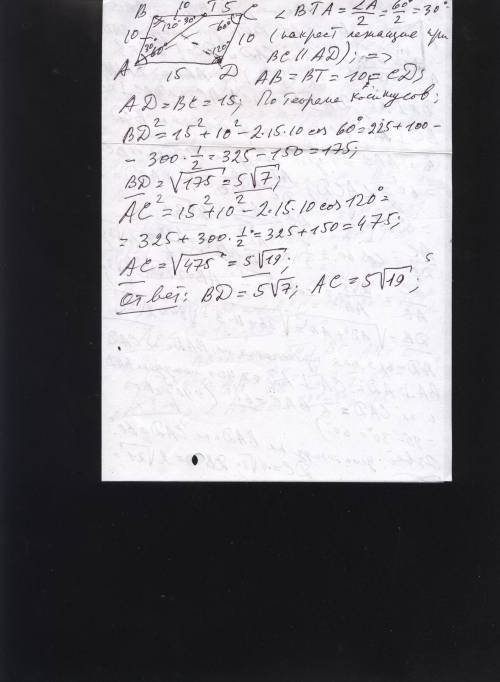 B 10 T 5 C ∠BTA = ∠A/2 = 60°/2 = 30°
10 120° 30° 60° 10 (накрест лежащие при
30° 60° 120° BC || AD); =>
A 15 D AB = BT = 10 = CD;
AD = BC = 15; По теореме косинусов;
BD² = 15² + 10² - 2·15·10 cos 60° = 225 + 100 -
- 300·1/2 = 325 - 150 = 175;
BD = √175 = 5√7;
AC² = 15² + 10² - 2·15·10 cos 120° =
= 325 + 300·1/2 = 325 + 150 = 475;
AC = √475 = 5√19;
Ответ: BD = 5√7; AC = 5√19;